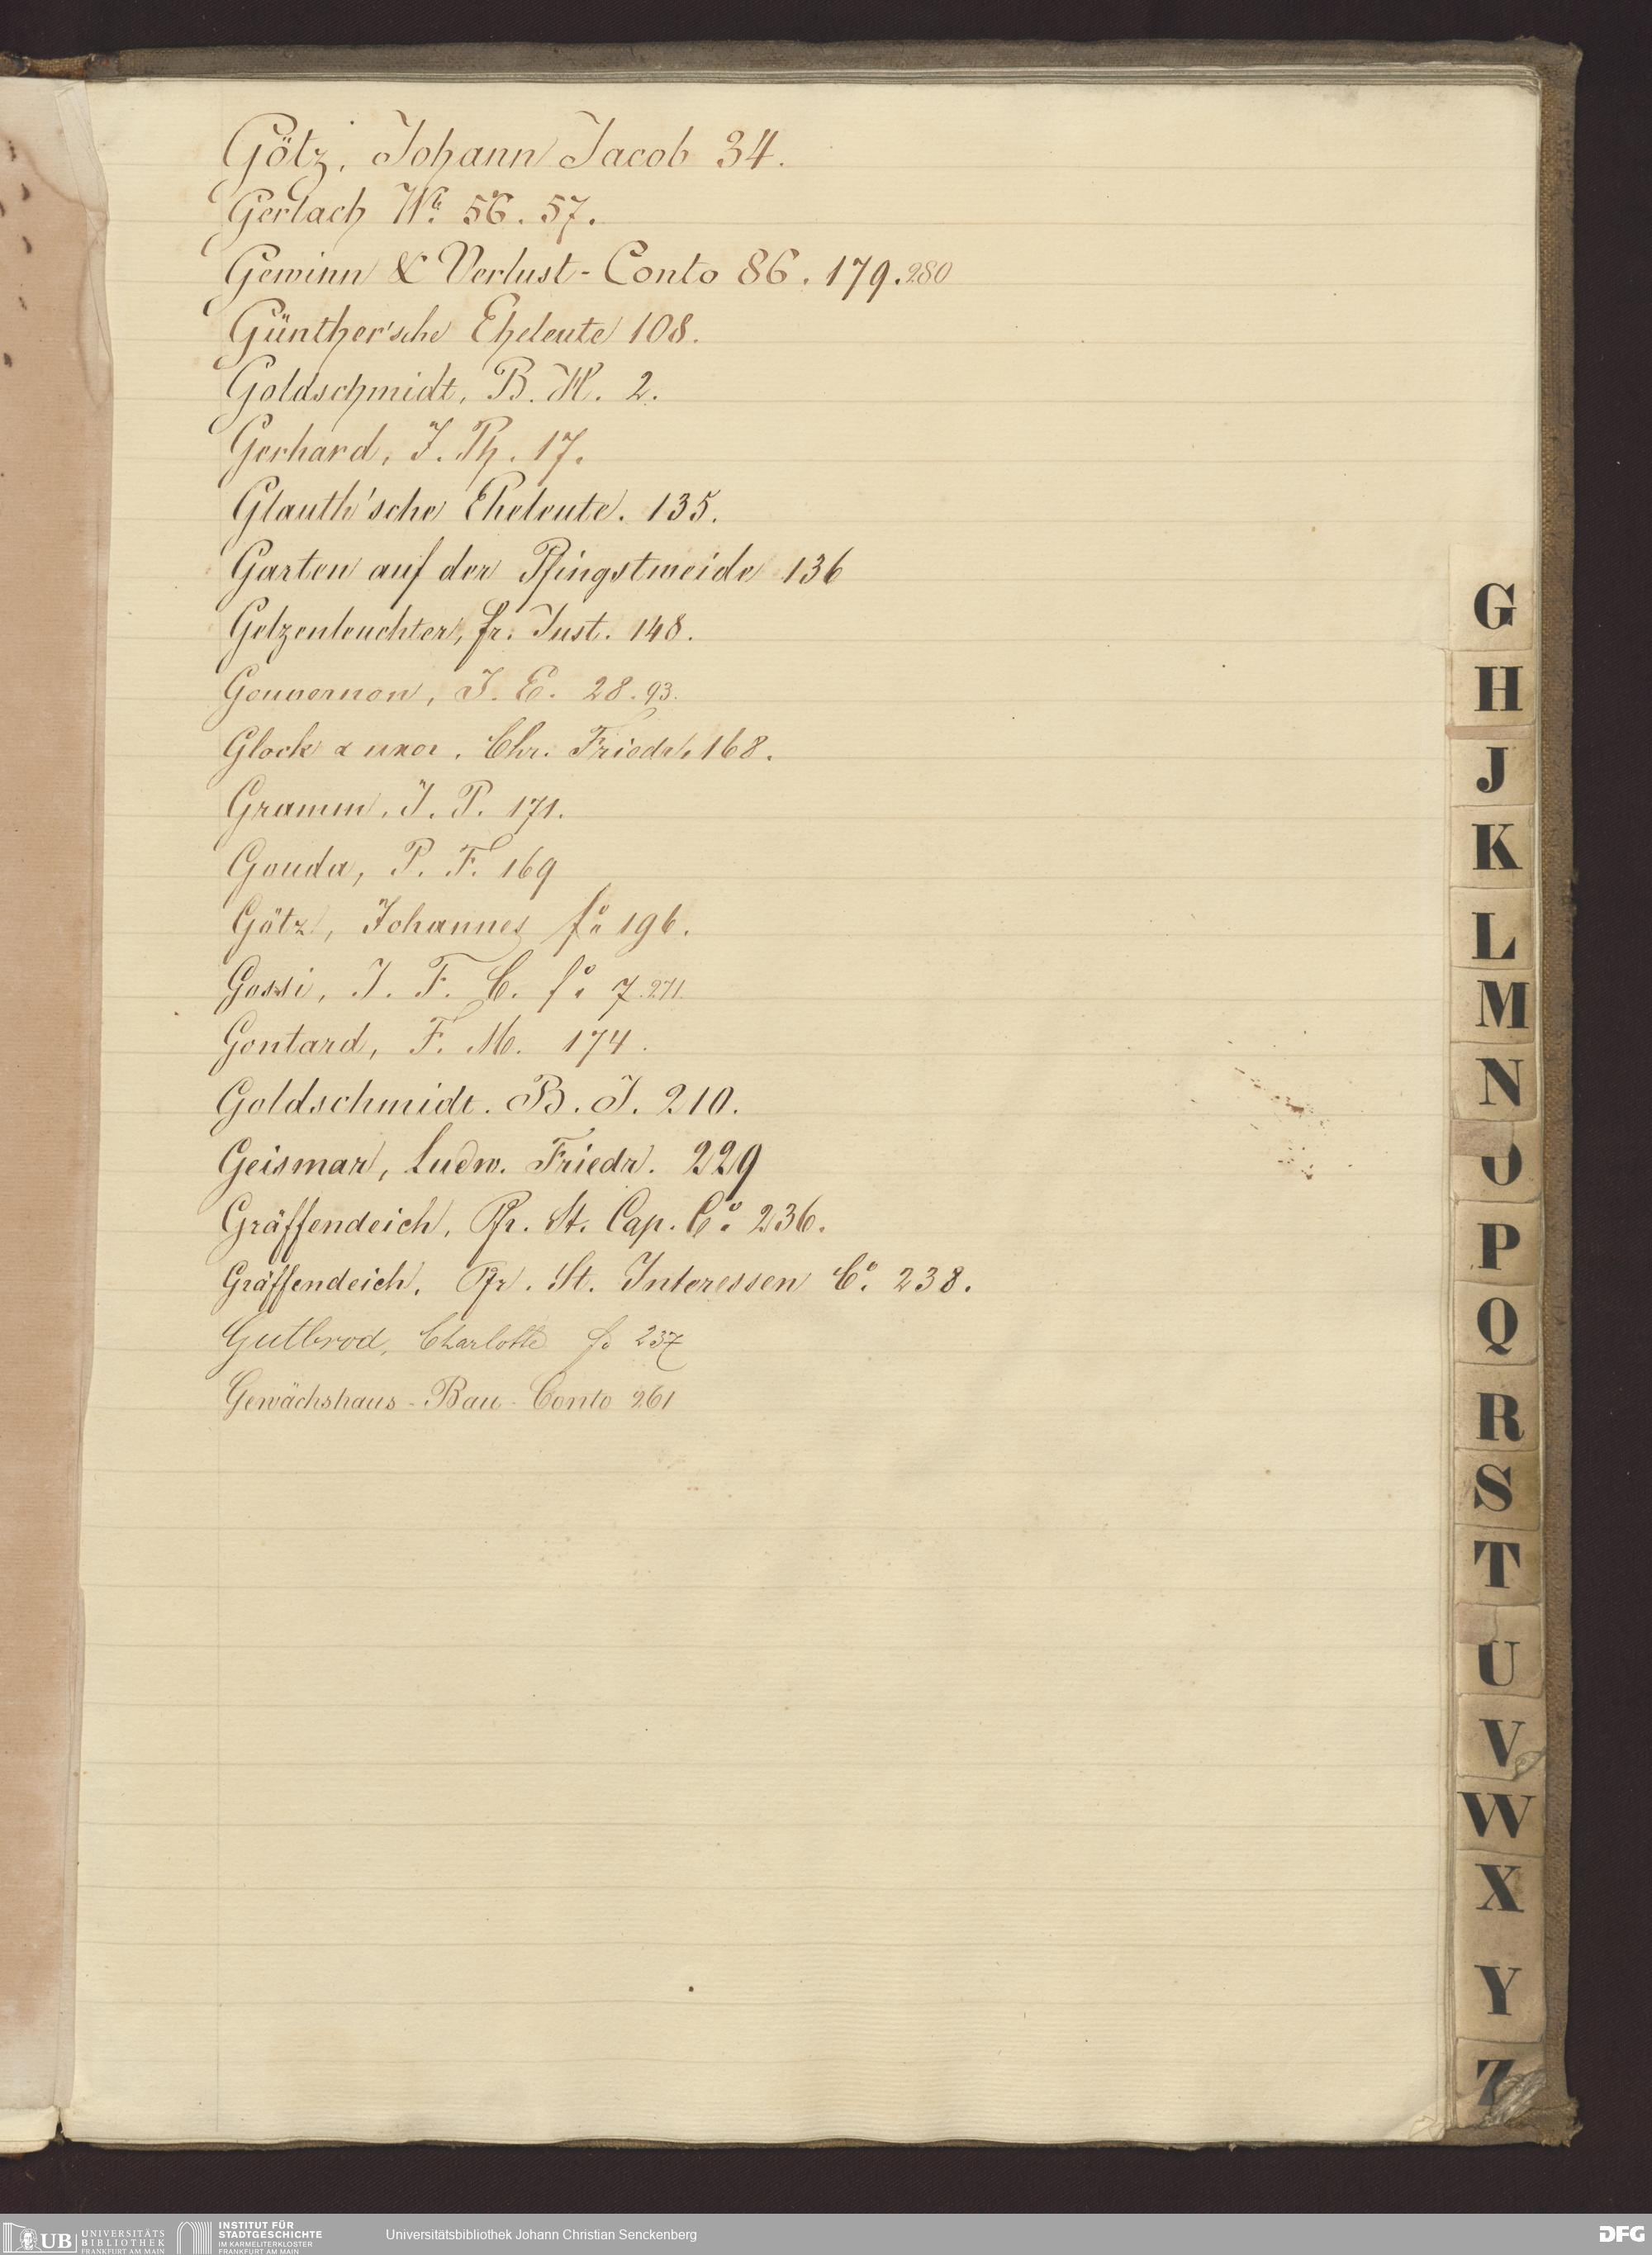 Götz, Johann Jacob 34.
Gerlach We. 56. 57.
Gewinn & Verlust-Conto 86. 179. 280
Günther'sche Eheleute 108.
Goldschmidt, B. H. 2.
Gerhard, J. Ph. 17.
Glauth'sche Eheleute. 135.
Garten auf der Pfingstweide 136
Gelzenleuchter, fr. Just. 148.
Gouvernon, J. E. 28. 93.
Glock & uxor. Chr. Friedr. 168.
Gramm. J. P. 171.
Gouda, P. F. 169
Götz, Johannes fo 196.
Gossi, J. F. C. fo 7. 271.
Gontard, F. M. 174.
Goldschmidt. B. J. 210.
Geismar, Ludw. Friedr. 229
Gräffendeich, Pfr. St. Cap. Co. 236.
Gräffendeich, Pfr. St. Interessen Co. 238.
Gutbrod, Charlotte fo 237
Gewächshaus-Bau-Conto 261
G
H
J
K
L
M
N
O
P
Q
R
S
T
U
V
W
X
Y
Z
UB UNIVERSITÄTS
BIBLIOTHEK
FRANKFURT AM MAIN
INSTITUT FÜR
STADTGESCHICHTE
IM KARMELITERKLOSTER
FRANKFURT AM MAIN
Universitätsbibliothek Johann Christian Senckenberg
DFG